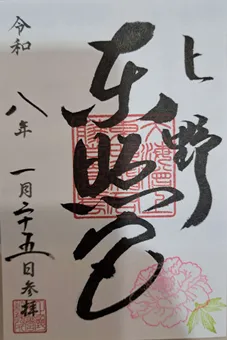 上野
東照宮
令和
八年
一月二十五日参拝